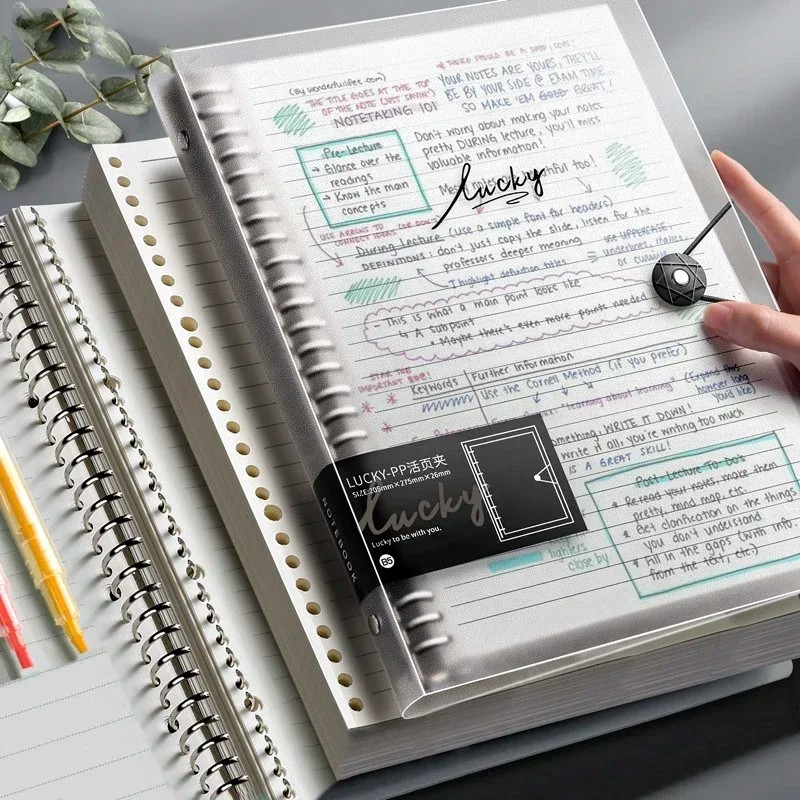 (By wonderfulifee.com)
* THERE SHOULD BE A
THE TITLE GOES AT THE TOP
OF THE NOTE (JUST SAYIN')
NOTETAKING 101
YOUR NOTES ARE YOURS, THEY'LL
BE BY YOUR SIDE @ EXAM TIME
SO MAKE 'EM GOOD GREAT!
Don't worry about making your notes
pretty DURING lecture, you'll miss
valuable information!
too!
Pre-Lecture
→ Glance over the
readings
→ Know the main
concepts
lucky
USE ARROWS TO
CONNECT IDEAS (OR DON'T)
During Lecture (use a simple font for headers)
DEFINITIONS: don't just copy the slide, listen for the
professors deeper meaning
I highlight definition titles
= use UPPERCASE,
underlines, italics,
or cursive
- This is what a main point looks like
↳ A subpoint
* Maybe there's even more points needed
* STAR THE
IMPORTANT
Keywords
Further Information
Use the Cornell Method (if you prefer)
"learning about learning"
(Expand this
however long
you'd like)
WRITE IT DOWN!
write it all, you're writing too much
IS A GREAT SKILL!
LUCKY-PP活页夹
SIZE:205mm×275mm×26mm
lucky
Lucky to be with you.
B5
NOTEBOOK
lighters
close by
Post Lecture To Do's
* Re-read your notes, make them
pretty, mind map, etc.
* Get clarification on the things
you don't understand
* Fill in the gaps (with info.
from the text, etc.)